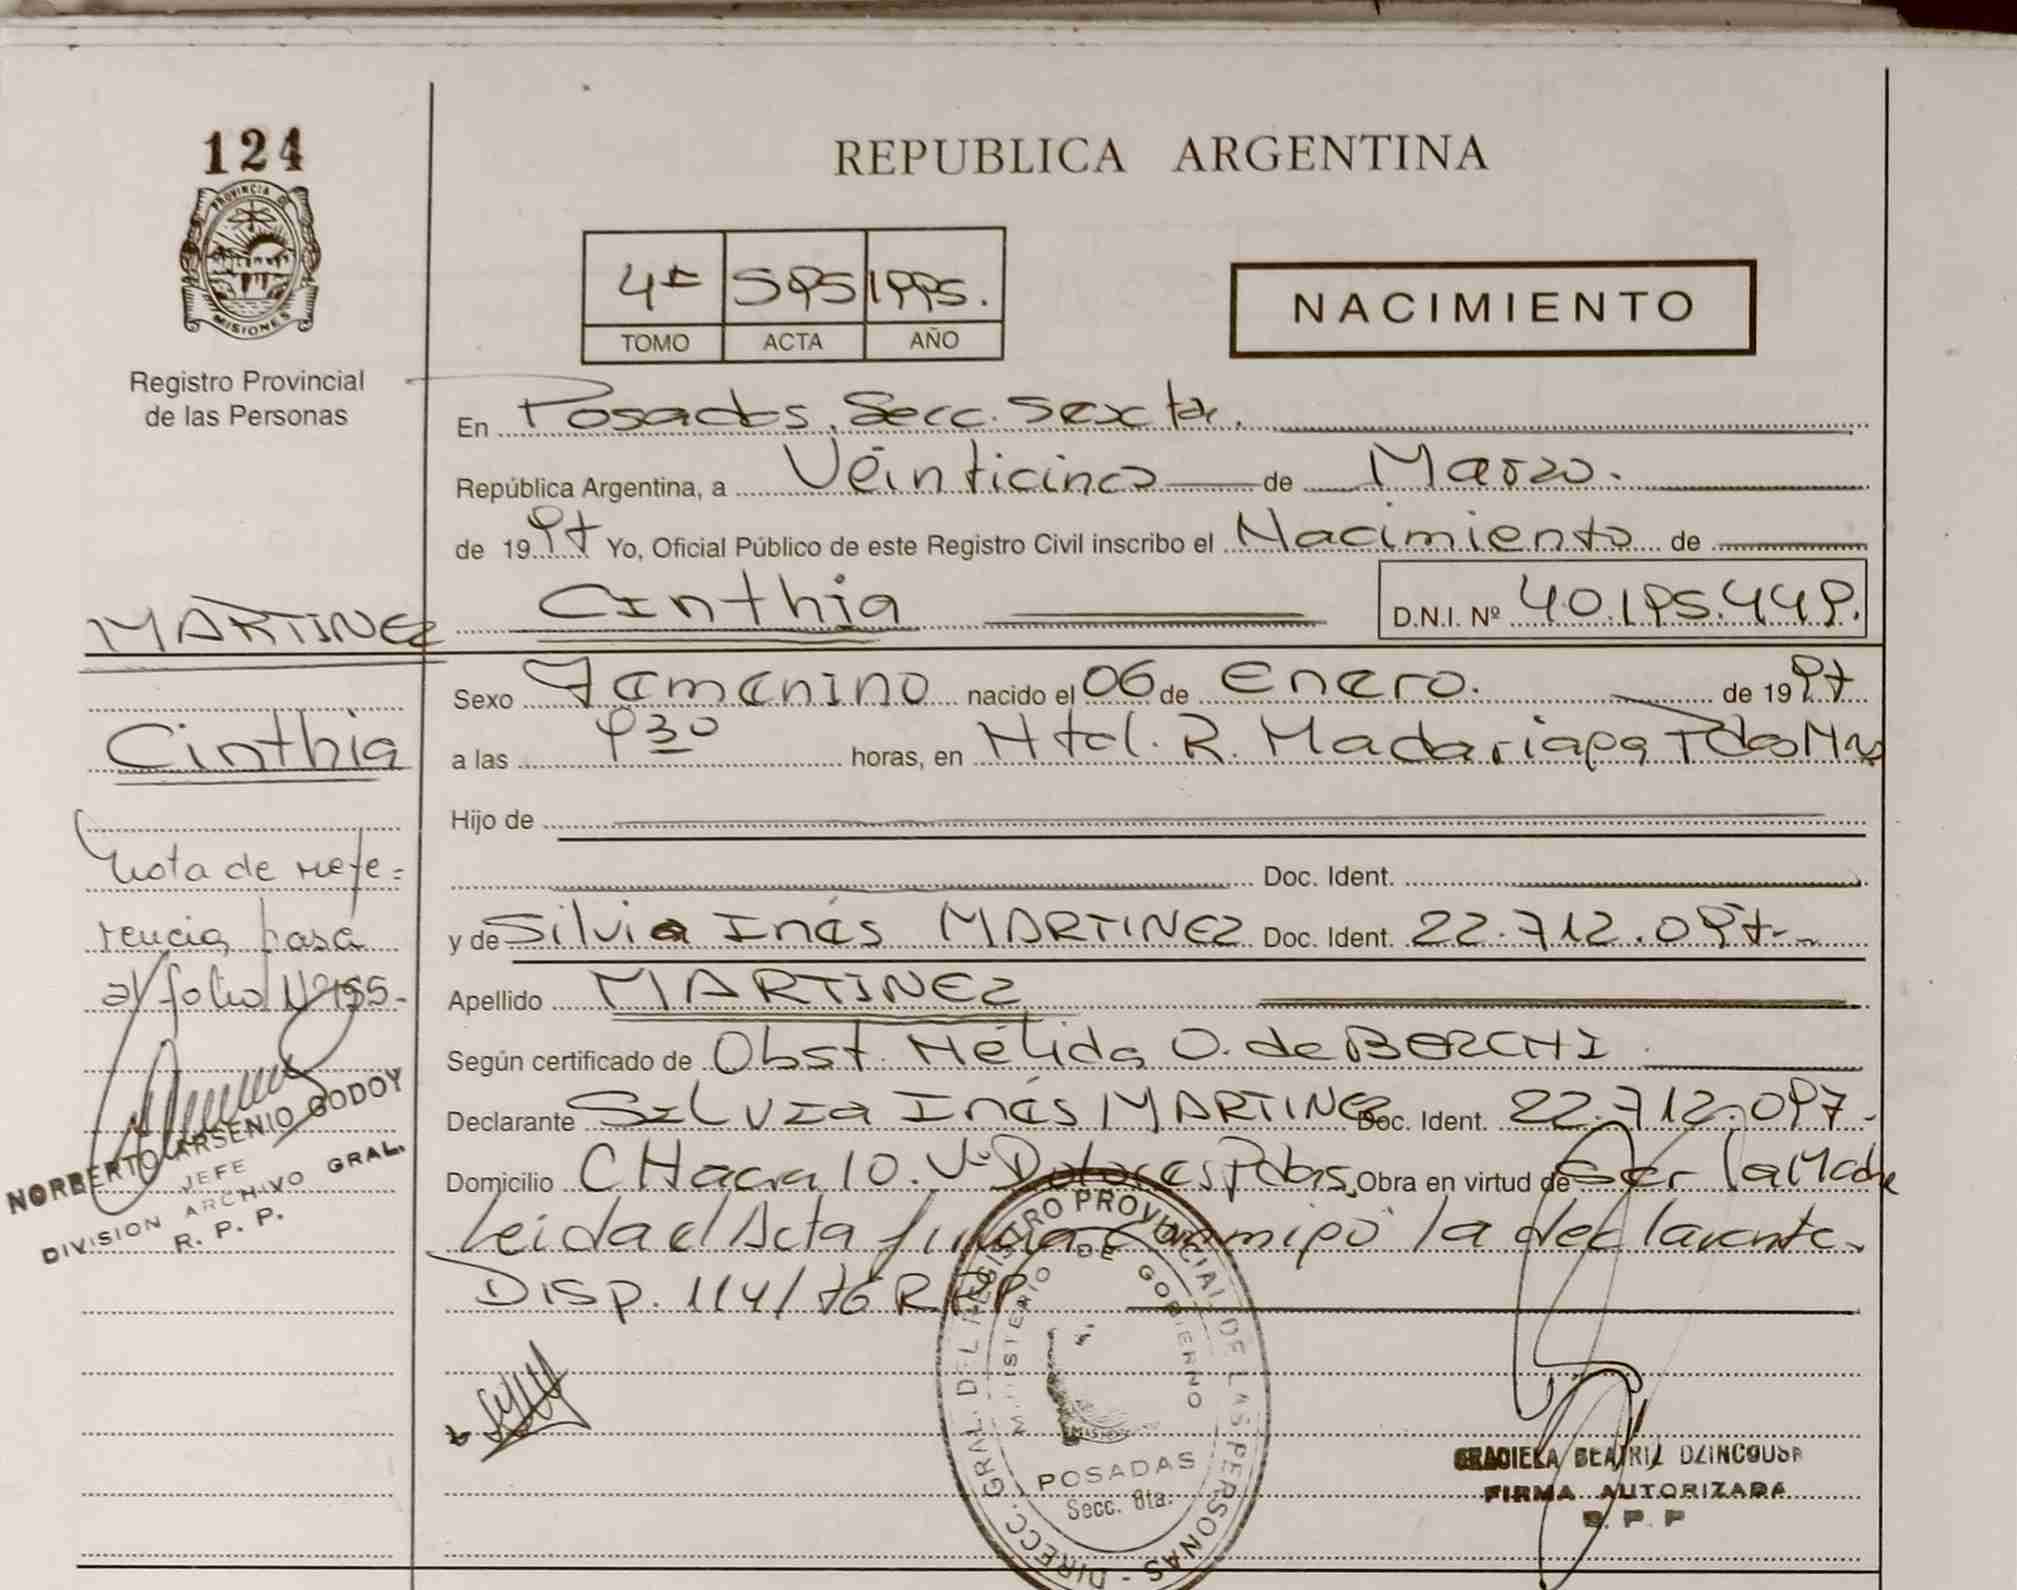 124
PROVINCIA DE
MISIONES
Registro Provincial
de las Personas
REPUBLICA ARGENTINA
4º 595 1995.
TOMO ACTA AÑO
NACIMIENTO
En Posadas, Secc. Sexta.
República Argentina, a Veinticinco de Marzo.
de 1997 Yo, Oficial Público de este Registro Civil inscribo el Nacimiento de
Cinthia D.N.I. Nº 40.195.449.
Sexo Femenino nacido el 06 de Enero. de 1997
a las 930 horas, en Htal. R. Madariaga Pdas Mnes
Hijo de
Doc. Ident.
y de Silvia Inés MARTINEZ Doc. Ident. 22.712.097.-
Apellido MARTINEZ
Según certificado de Obst. Nélida O. de BERCHI
Declarante Silvia Inés MARTINEZ Doc. Ident. 22.712.097-
Domicilio CHacra 10. Vº Dolores Pdas, Obra en virtud de Ser la Madre
Leida el Acta firma conmigo la declarante.
DISP. 114/76 R.P.P.
MARTINEZ
Cinthia
Nota de refe=
rencia, pasa
al folio Nº 195-
NORBERTO ARSENIO GODOY
JEFE
DIVISION ARCHIVO GRAL.
R. P. P.
DIRECC. GRAL. DEL REGISTRO PROVINCIAL DE LAS PERSONAS -
MINISTERIO DE GOBIERNO
MISIONES
POSADAS
Secc. 6ta.
GRACIELA BEATRIZ DZINCOUSR
FIRMA AUTORIZADA
R. P. P